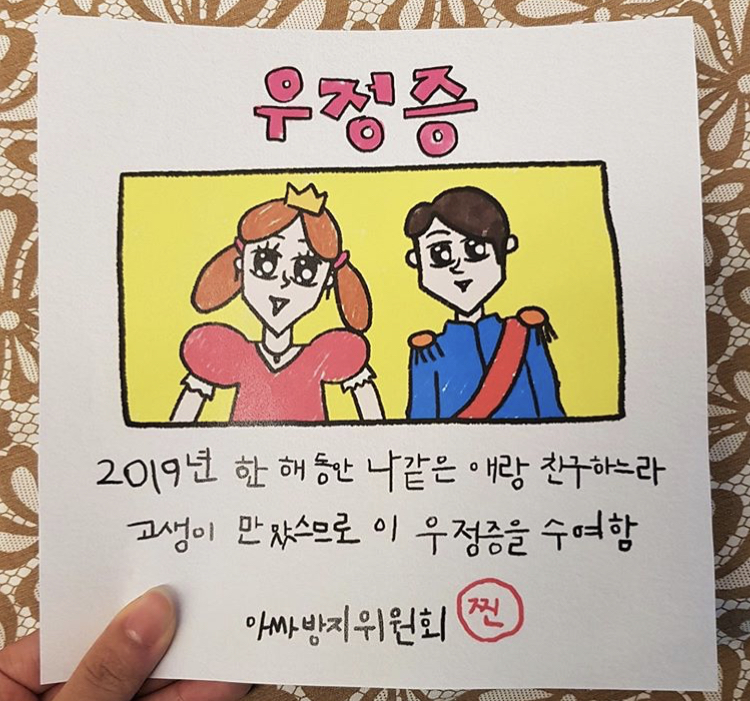 우정증
2019년 한 해 동안 나같은 애랑 친구하느라
고생이 만았스므로 이 우정증을 수여함
아싸방지위원회 찐